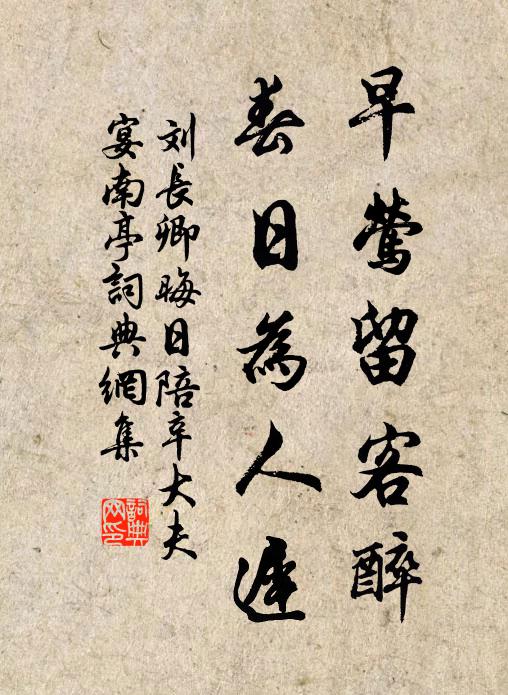 早鶯留客醉
春日為人遲
刘長卿晦日陪辛大夫
宴南亭詞典網集
詞典
网印